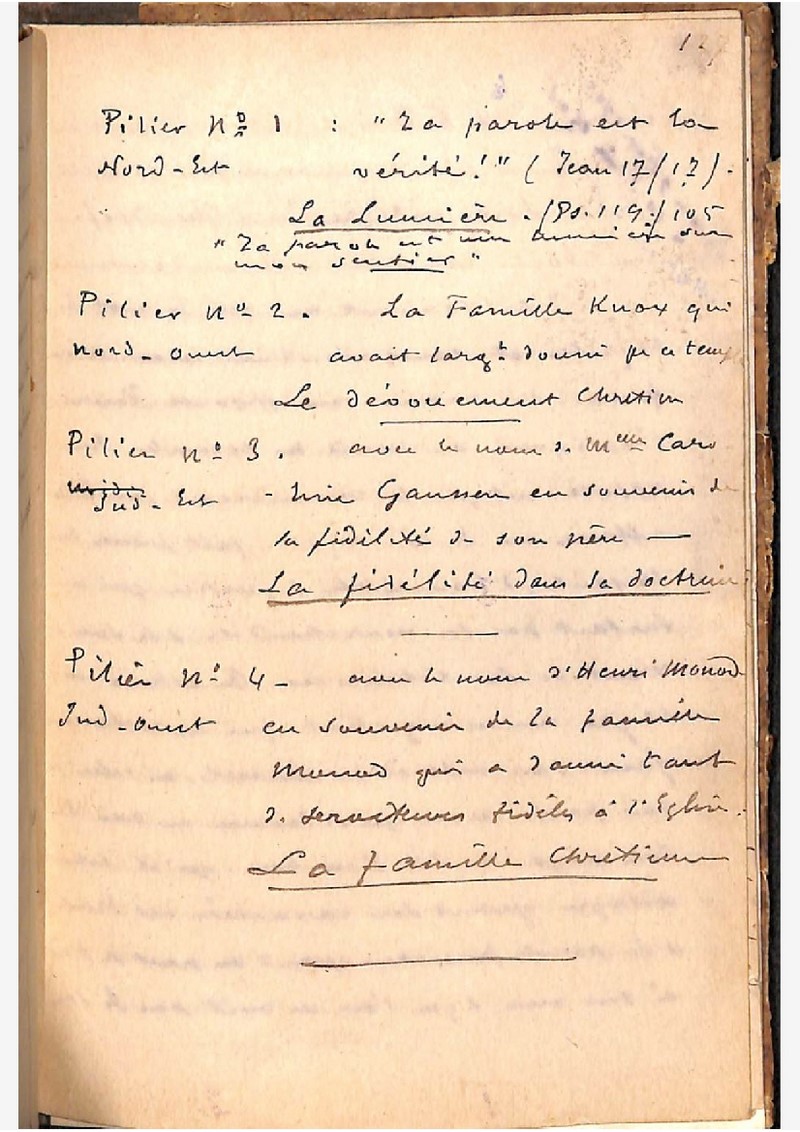 127
Pilier No 1 : "Ta parole est la
Nord-Est vérité!" (Jean 17/17).
La Lumière. (Ps. 119/105
"Ta parole est une lumière sur
mon sentier"
Pilier No 2. La Famille Knox qui
Nord-Ouest avait largt donné pr ce temple
Le dévouement Chrétien
Pilier No 3. avec le nom de Melle Caro
Midi
Sud-Est -line Gaussen en souvenir de
la fidélité de son père —
La fidélité dans la doctrine
Pilier No 4 - avec le nom d'Henri Monod
Sud-Ouest en souvenir de la famille
Monod qui a donné tant
de serviteurs fidèles à l'Eglise.
La famille Chrétienne